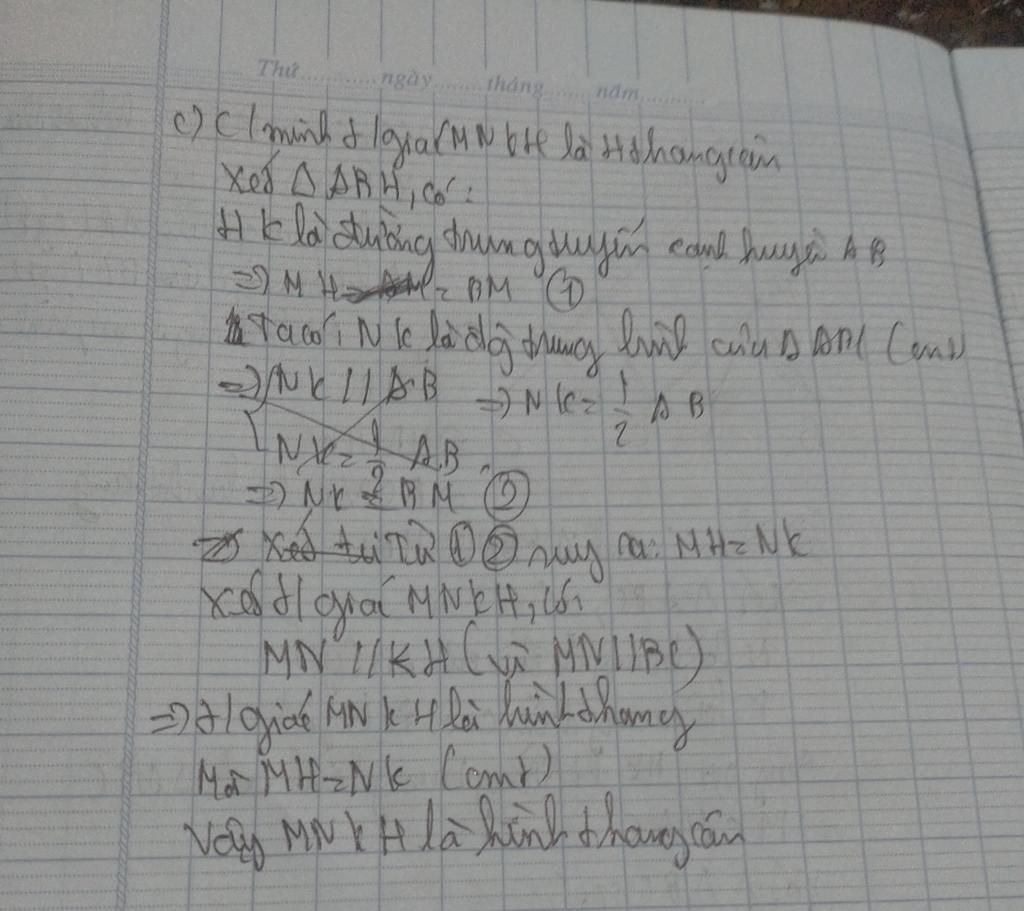 Thứ............ngày........tháng.......năm...........
c) C/minh t/giác MNKH là H thang cân
Xét Δ ABH, có:
HK là đường trung tuyến cạnh huyền AB
=> MH = BM ①
Ta có: NK là đg trung bình của Δ ABC (cmt)
=> NK // AB => NK = 1/2 AB
NK = 1/2 AB
=> NK = BM ②
Từ ① ② suy ra: MH = NK
Xét t/giác MNKH, có:
MN // KH (vì MN // BC)
=> t/giác MNKH là hình thang
Mà MH = NK (cmt)
Vậy MNKH là hình thang cân